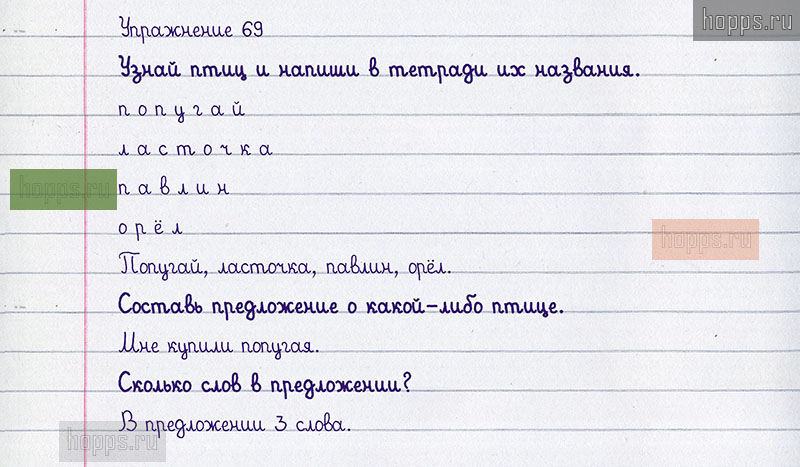 hopps.ru
Упражнение 69
Узнай птиц и напиши в тетради их названия.
п о п у г а й
л а с т о ч к а
hopps.ru
п а в л и н
о р ё л
hopps.ru
Попугай, ласточка, павлин, орёл.
Составь предложение о какой-либо птице.
Мне купили попугая.
Сколько слов в предложении?
В предложении 3 слова.
hopps.ru